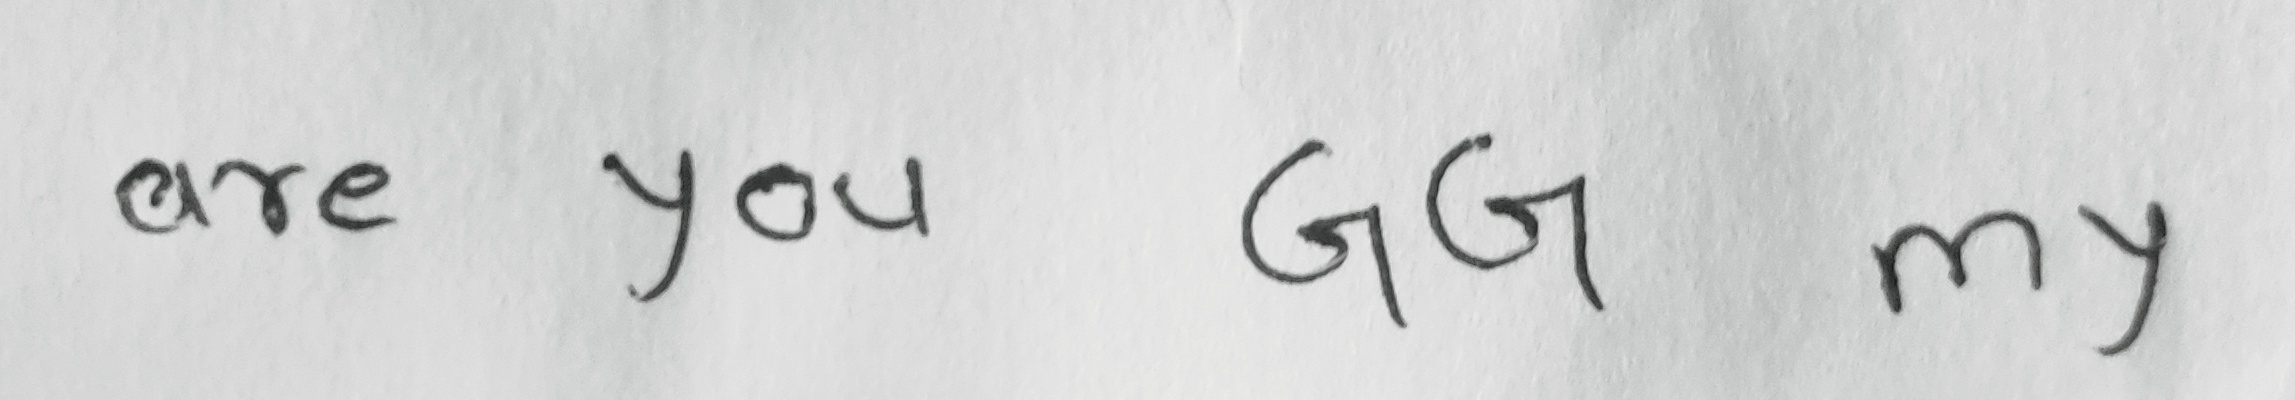 are you GG my